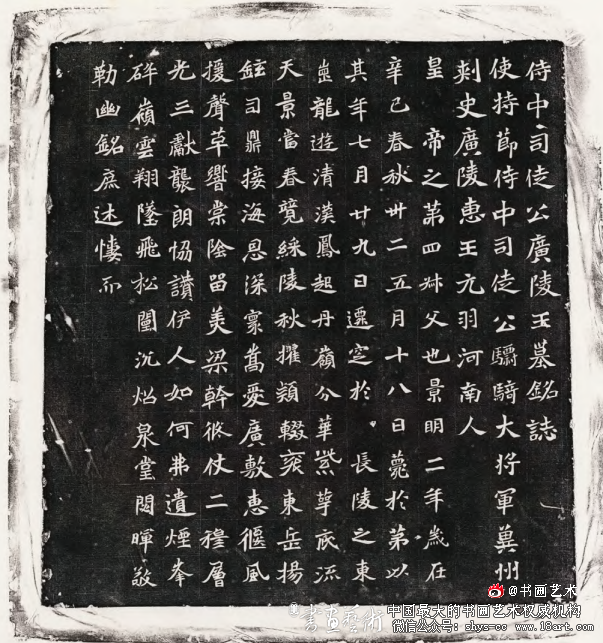 侍中司徒公廣陵王墓銘誌
使持節侍中司徒公驃騎大將軍冀州
刺史廣陵惠王元羽河南人
皇帝之第四叔父也景明二年歲在
辛巳春秋卅二五月十八日薨於第以
其年七月廿九日遷窆於長陵之東
崗龍遊清漢鳳起丹嶺分華紫萼底流
天景當春競綵陵秋擢穎輟袞東岳揚
鉉司鼎接海恩深寰嵩愛廣敷惠偃風
援聲革響棠陰留美梁幹俯仗二穆層
光三獻襲朗協讚伊人如何弗遺煙峯
碎嶺雲翔墜飛松闈沉炤泉堂閟暉敬
勒幽銘庶述悽而
書畫藝術
@书画艺术
中国最大的书画艺术权威机构
微信公众号: shys-cc www.18art.com